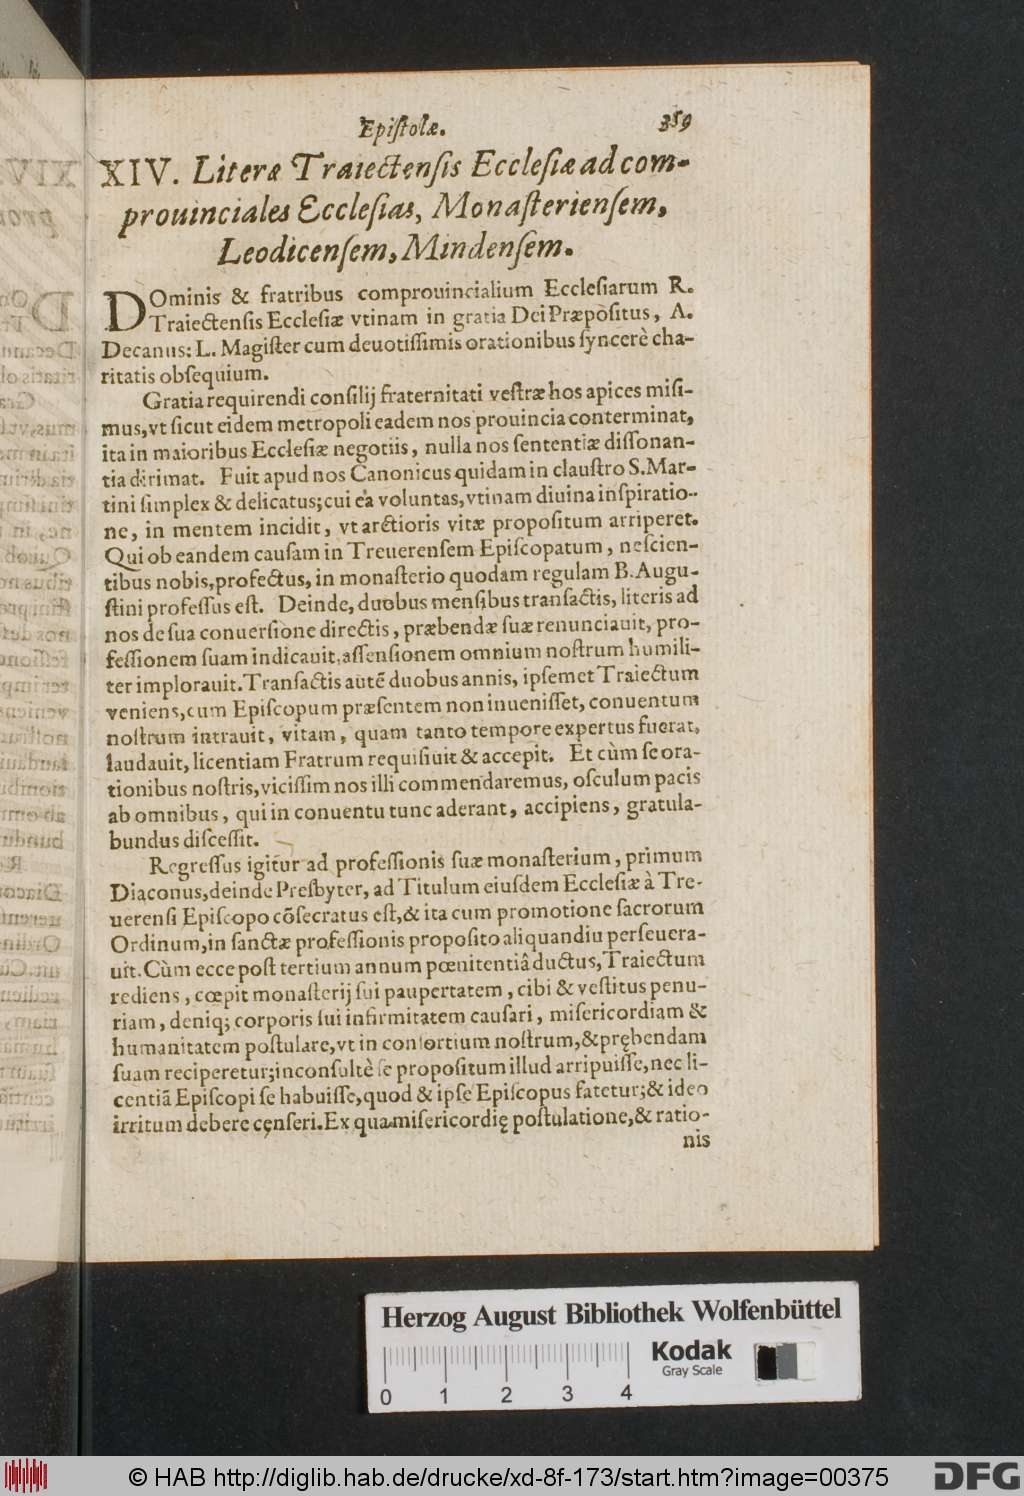 Epistolæ.
359
XIV. Literæ Traiectensis Ecclesiæ ad com-
prouinciales Ecclesias, Monasteriensem,
Leodicensem, Mindensem.
DOminis & fratribus comprouincialium Ecclesiarum R.
Traiectensis Ecclesiæ vtinam in gratia Dei Præpositus, A.
Decanus: L. Magister cum deuotissimis orationibus syncerè cha-
ritatis obsequium.
Gratia requirendi consilij fraternitati vestræ hos apices misi-
mus, vt sicut eidem metropoli eadem nos prouincia conterminat,
ita in maioribus Ecclesiæ negotiis, nulla nos sententiæ dissonan-
tia dirimat. Fuit apud nos Canonicus quidam in claustro S. Mar-
tini simplex & delicatus; cui ea voluntas, vtinam diuina inspiratio-
ne, in mentem incidit, vt arctioris vitæ propositum arriperet.
Qui ob eandem causam in Treuerensem Episcopatum, nescien-
tibus nobis, profectus, in monasterio quodam regulam B. Augu-
stini professus est. Deinde, duobus mensibus transactis, literis ad
nos de sua conuersione directis, præbendæ suæ renunciauit, pro-
fessionem suam indicauit, assensionem omnium nostrum humili-
ter implorauit. Transactis autē duobus annis, ipsemet Traiectum
veniens, cum Episcopum præsentem non inuenisset, conuentum
nostrum intrauit, vitam, quam tanto tempore expertus fuerat,
laudauit, licentiam Fratrum requisiuit & accepit. Et cùm se ora-
tionibus nostris, vicissim nos illi commendaremus, osculum pacis
ab omnibus, qui in conuentu tunc aderant, accipiens, gratula-
bundus discessit.
Regressus igitur ad professionis suæ monasterium, primum
Diaconus, deinde Presbyter, ad Titulum eiusdem Ecclesiæ à Tre-
uerensi Episcopo cōsecratus est, & ita cum promotione sacrorum
Ordinum, in sanctæ professionis proposito aliquandiu perseuera-
uit. Cùm ecce post tertium annum pœnitentiâ ductus, Traiectum
rediens, cœpit monasterij sui paupertatem, cibi & vestitus penu-
riam, deniq; corporis sui infirmitatem causari, misericordiam &
humanitatem postulare, vt in consortium nostrum, & prębendam
suam reciperetur; inconsultè se propositum illud arripuisse, nec li-
centiā Episcopi se habuisse, quod & ipse Episcopus fatetur; & ideo
irritum debere cęnseri. Ex qua misericordię postulatione, & ratio-
nis
Herzog August Bibliothek Wolfenbüttel
Kodak
Gray Scale
0 1 2 3 4
© HAB http://diglib.hab.de/drucke/xd-8f-173/start.htm?image=00375
DFG